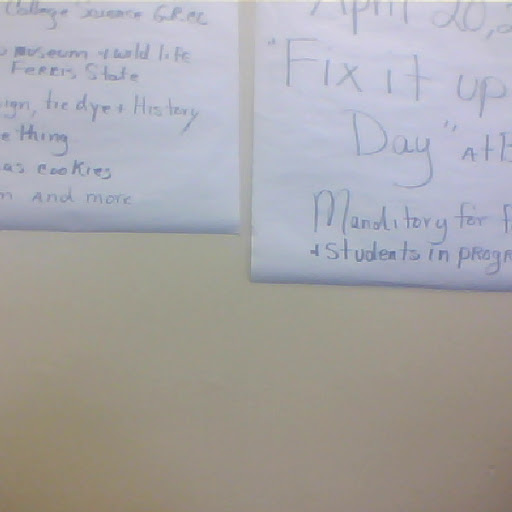 College Science GRCC
museum + wild life
Ferris State
tie dye + History
thing
cookies
and more
April 20,
"Fix it up
Day" At
Manditory for
+ Students in